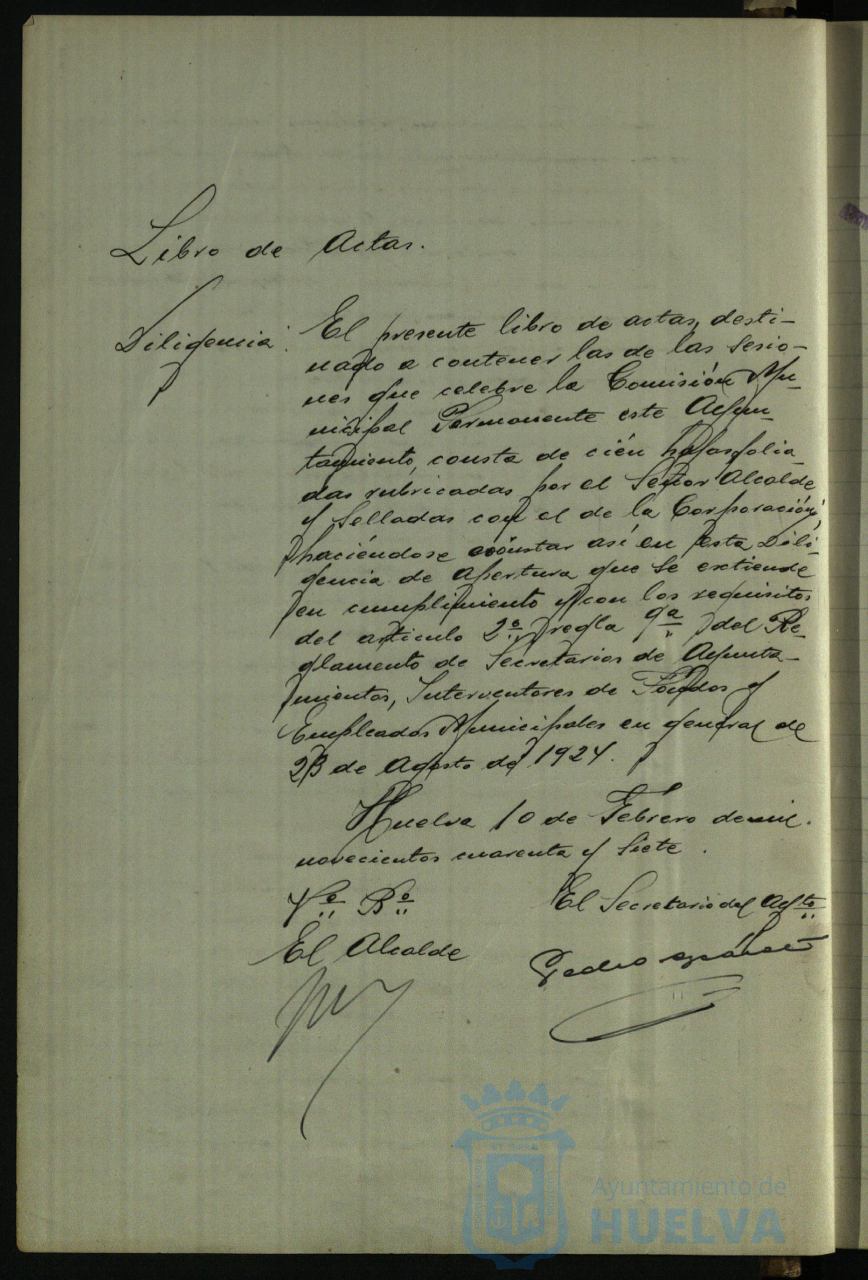 Libro de Actas.
Diligencia: El presente libro de actas, desti-
nado a contener las de las Sesio-
nes que celebre la Comisión Mu-
nicipal Permanente este Ayun-
tamiento, consta de cién hojas folia-
das rubricadas por el Señor Alcalde
y Selladas con el de la Corporación,
haciéndose constar así en esta Dili-
gencia de Apertura que se extiende
en cumplimiento y con los requisitos
del articulo 2º regla 9ª del Re-
glamento de Secretarios de Ayunta-
mientos, Interventores de Fondos y
Empleados Municipales en general de
23 de Agosto de 1924.
Huelva 10 de Febrero de mil
novecientos cuarenta y Siete.
Vº Bº El Secretario del Aytº
El Alcalde
Pedro
Ayuntamiento de
HUELVA